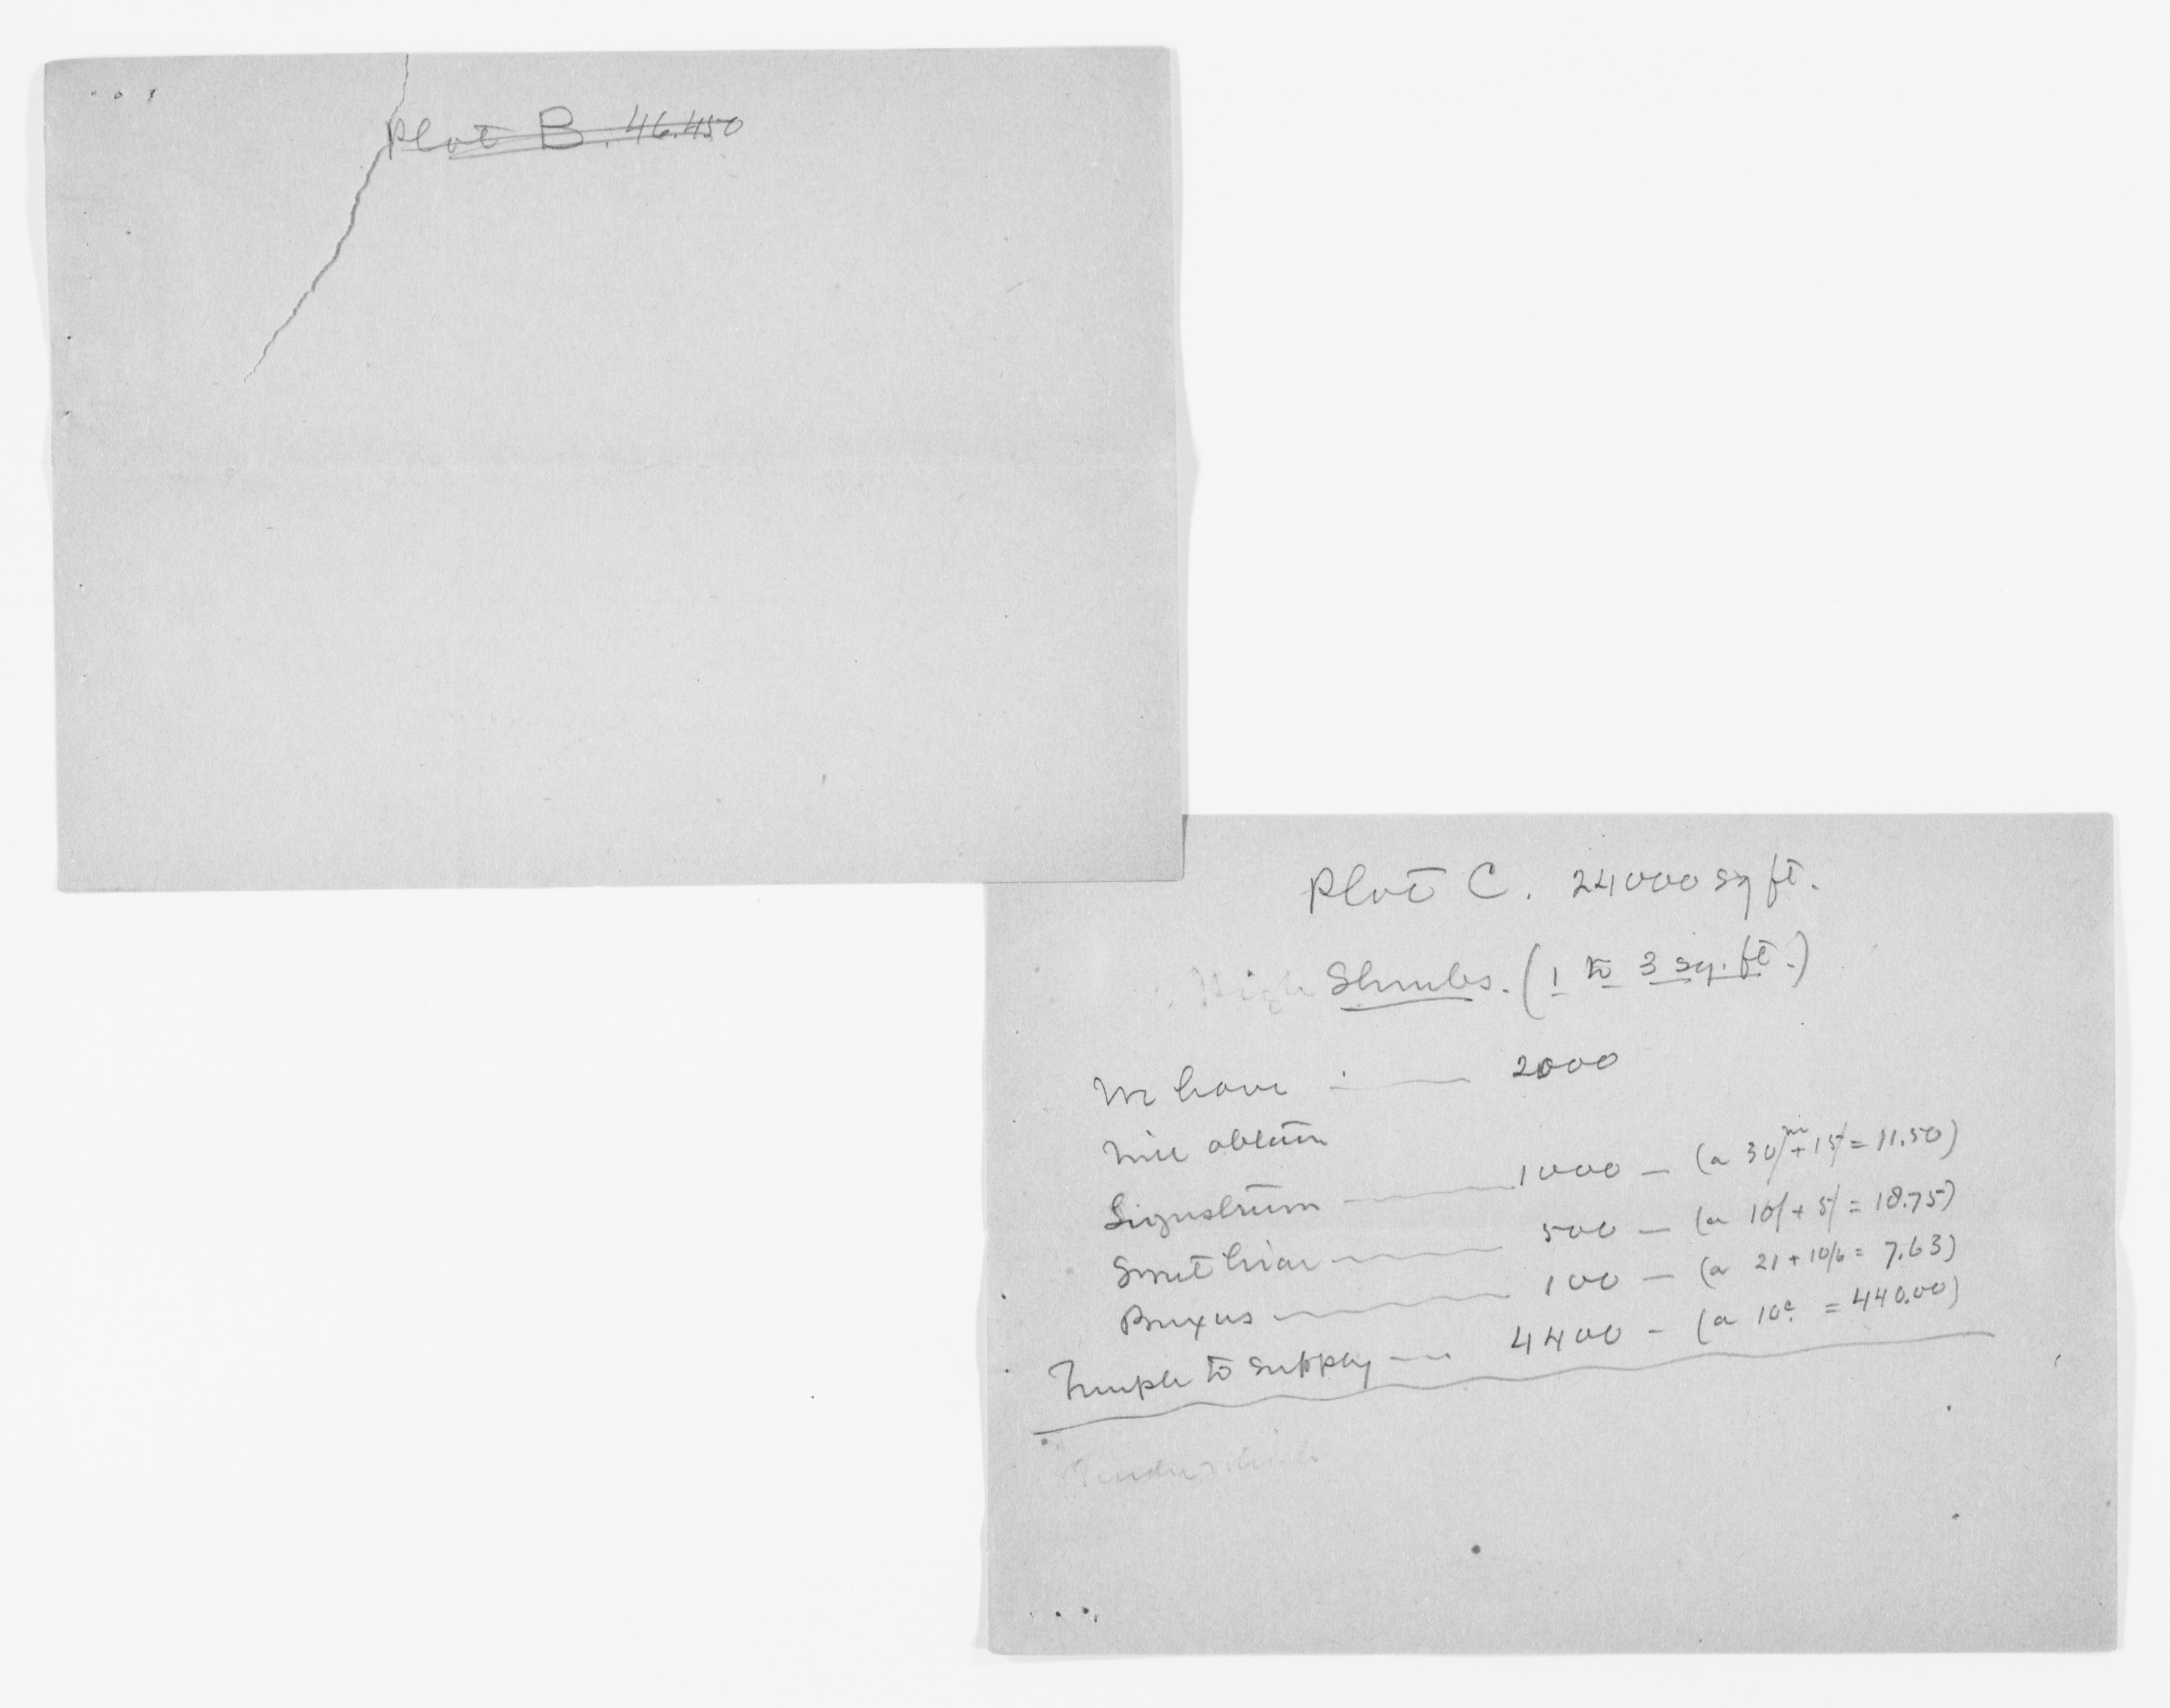 Plot B. 46.450
Plot C. 24000 sq ft.
High Shrubs. (1 to 3 sq. ft.)
We have — 2000
Will obtain
Ligustrum — 1000 — (a 30/m + 15/ = 11.50)
Sweet briar — 500 — (a 10/ + 5/ = 18.75)
Buxus — 100 — (a 21 + 10/6 = 7.63)
Temple to supply — 4400 — (a 10c. = 440.00)